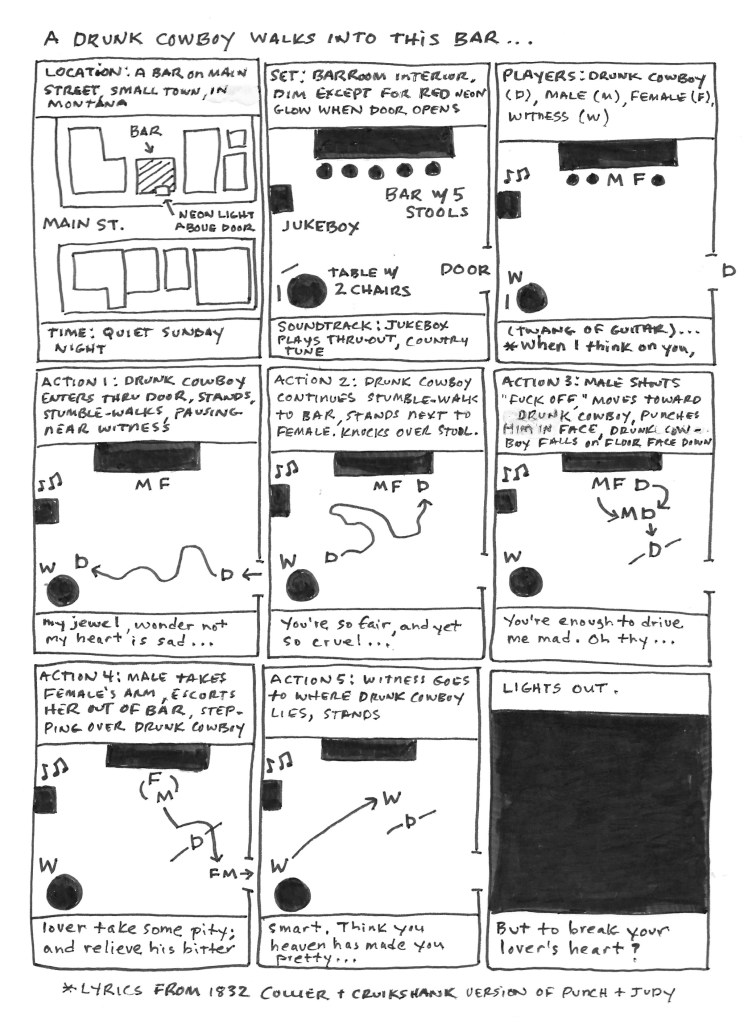 A DRUNK COWBOY WALKS INTO THIS BAR...
LOCATION: A BAR ON MAIN
STREET, SMALL TOWN, IN
MONTANA
BAR
NEON LIGHT
ABOUE DOOR
MAIN ST.
TIME: QUIET SUNDAY
NIGHT
SET: BARROOM INTERIOR,
DIM EXCEPT FOR RED NEON
GLOW WHEN DOOR OPENS
BAR W/ 5
STOOLS
JUKEBOX
TABLE W/
2 CHAIRS
DOOR
SOUNDTRACK: JUKEBOX
PLAYS THRU-OUT, COUNTRY
TUNE
PLAYERS: DRUNK COWBOY
(D), MALE (M), FEMALE (F),
WITNESS (W)
M F
W
D
(TWANG OF GUITAR)...
*When I think on you,
ACTION 1: DRUNK COWBOY
ENTERS THRU DOOR, STANDS,
STUMBLE-WALKS, PAUSING
NEAR WITNESS
M F
W D
D
my jewel, wonder not
my heart is sad...
ACTION 2: DRUNK COWBOY
CONTINUES STUMBLE-WALK
TO BAR, STANDS NEXT TO
FEMALE. KNOCKS OVER STOOL.
M F D
W D
You're so fair, and yet
so cruel...
ACTION 3: MALE SHOUTS
"FUCK OFF" MOVES TOWARD
DRUNK COWBOY, PUNCHES
HIM IN FACE, DRUNK COW-
BOY FALLS ON FLOOR FACE DOWN
M F D
M D
D
W
You're enough to drive
me mad. Oh thy...
ACTION 4: MALE TAKES
FEMALE'S ARM, ESCORTS
HER OUT OF BAR, STEP-
PING OVER DRUNK COWBOY
(F
M)
D
W
FM
lover take some pity;
and relieve his bitter
ACTION 5: WITNESS GOES
TO WHERE DRUNK COWBOY
LIES, STANDS
W
D
W
smart. Think you
heaven has made you
pretty...
LIGHTS OUT.
But to break your
lover's heart?
*LYRICS FROM 1832 COLLIER + CRUIKSHANK VERSION OF PUNCH + JUDY